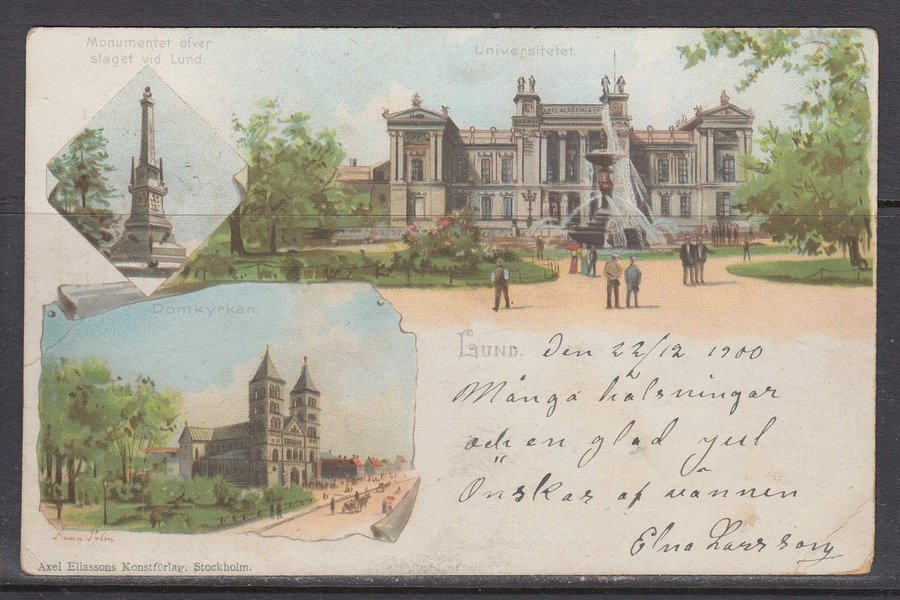 Monumentet öfver
slaget vid Lund.
Universitetet.
Domkyrkan.
LUND. den 22/12 1900
Många hälsningar
och en glad jul
Önskas af vännen
Elna Larsson
Anna Palm
Axel Eliassons Konstförlag, Stockholm.